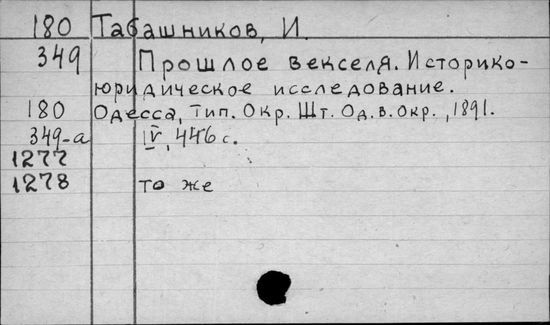 180 Табашников, И.
349 Прошлое векселя. Историко-
юридическое исследование.
180 Одесса, Тип. Окр. Шт. Од. в. окр., 1891.
349-а IV, 446 с.
1277
1278 то же